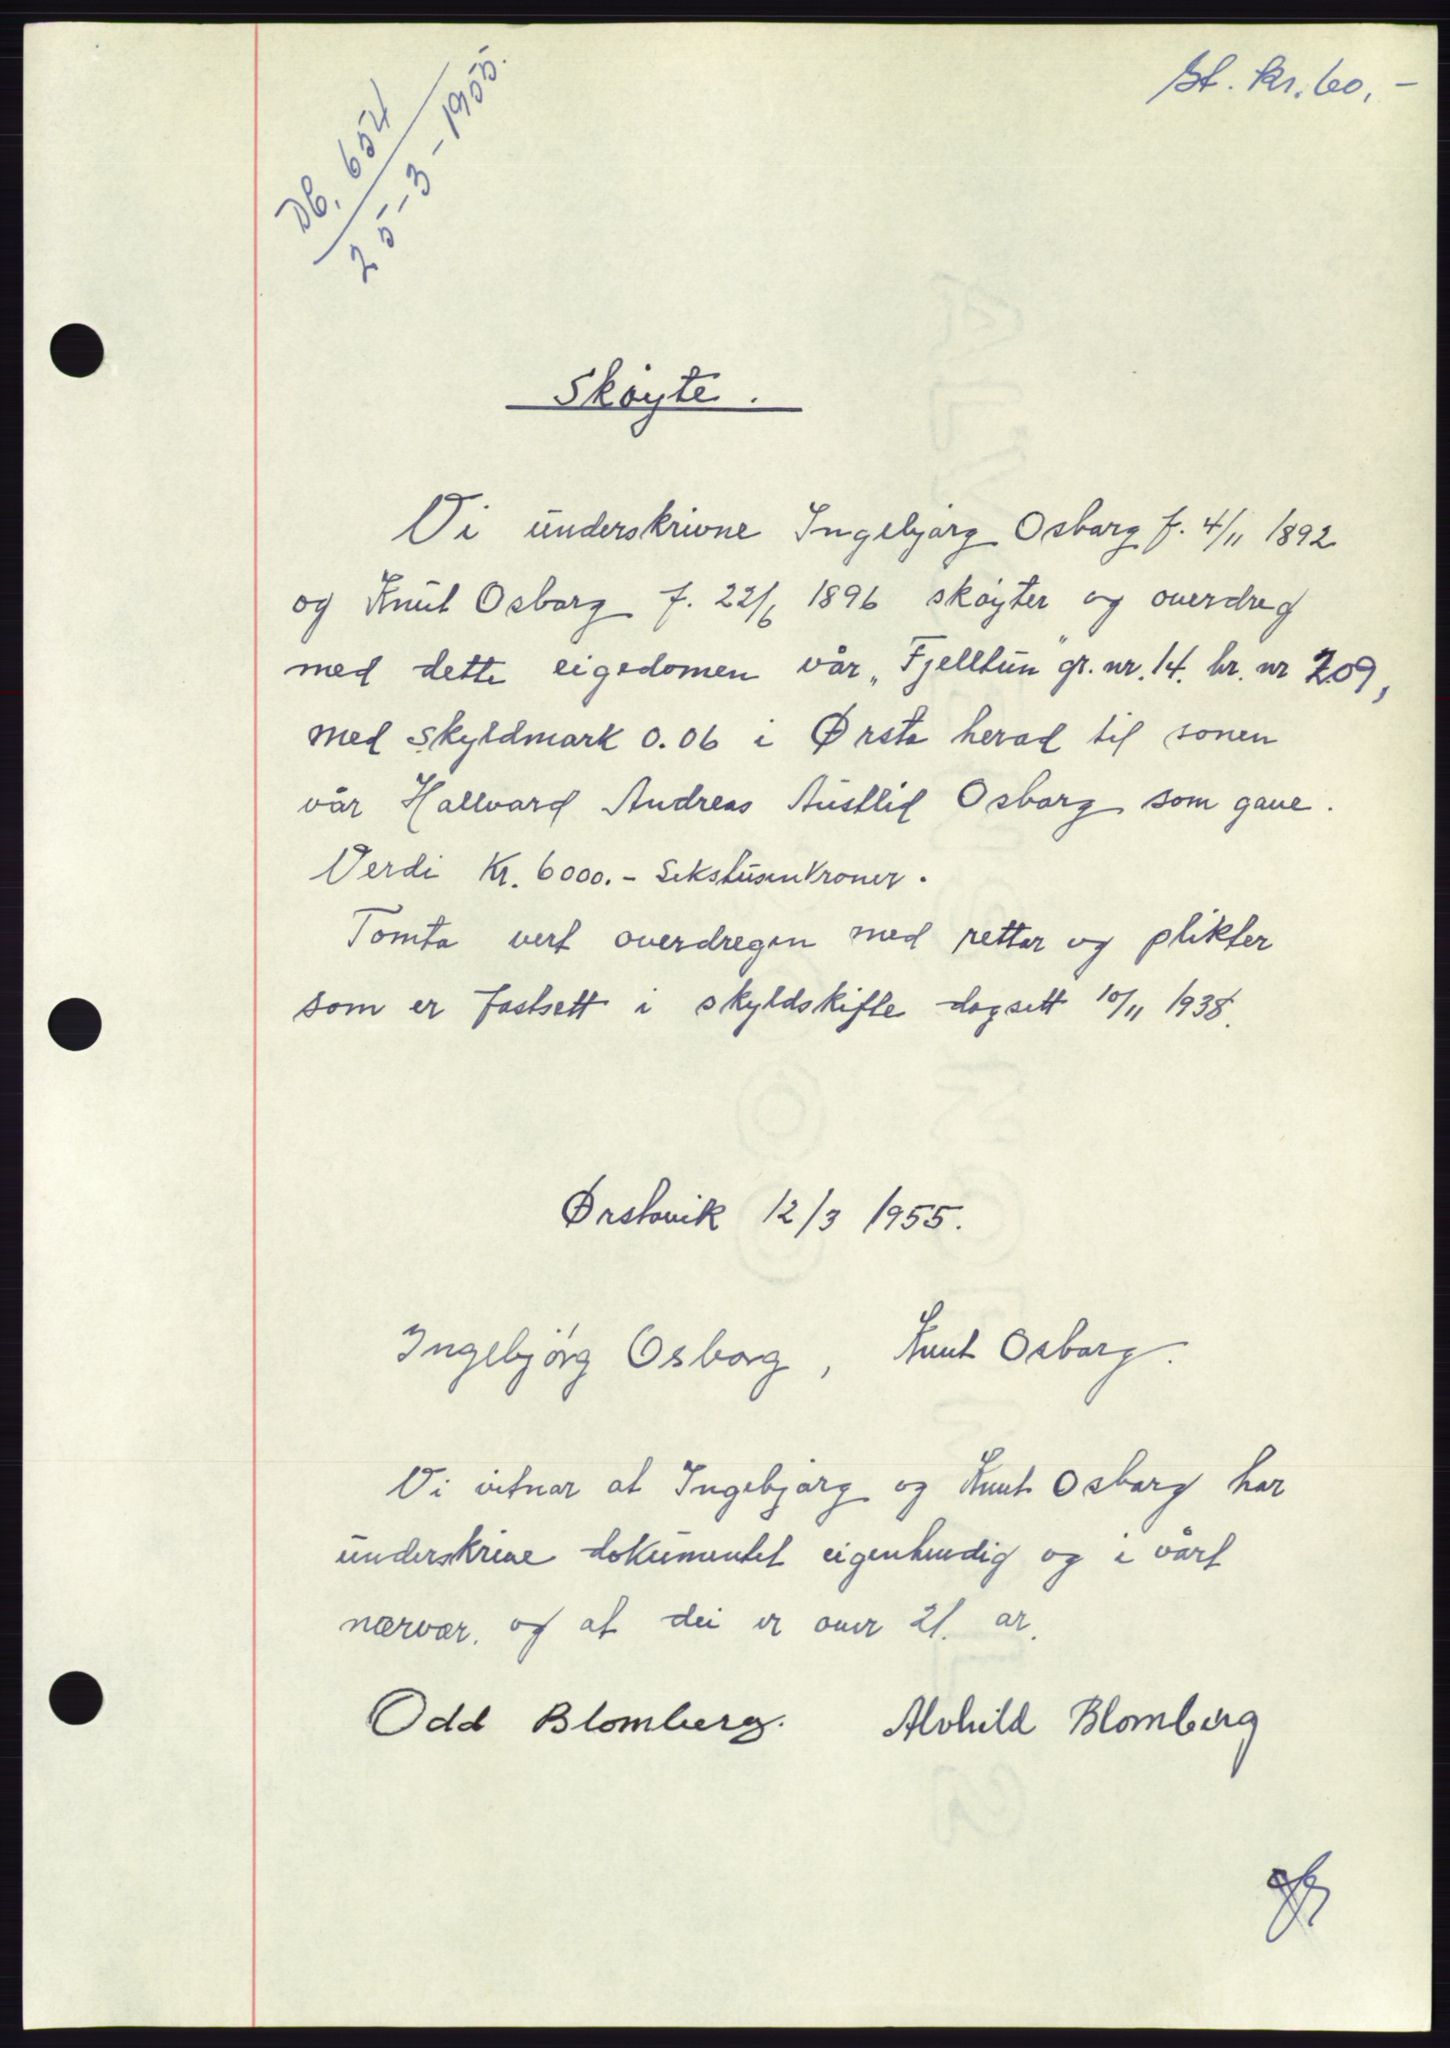 St. kr. 60,-
Db. 654
25-3-1955.
Skøyte.
Vi underskrivne Ingebjørg Osborg f. 4/11 1892
og Knut Osborg f. 22/6 1896 skøyter og overdreg
med dette eigedomen vår „Fjelltun" gr. nr. 14. br. nr 209,
med skyldmark 0.06 i Ørsta herad til sonen
vår Hallvard Andreas Austlid Osborg som gave.
Verdi Kr. 6000.- Sekstusenkroner.
Tomta vert overdregen med rettar og plikter
som er fastsett i skyldskifte dagsett 10/11 1938.
Ørstavik 12/3 1955.
Ingebjørg Osborg, Knut Osborg.
Vi vitnar at Ingebjørg og Knut Osborg har
underskrive dokumentet eigenhendig og i vårt
nærvær. og at dei er over 21. år.
Odd Blomberg. Alvhild Blomberg